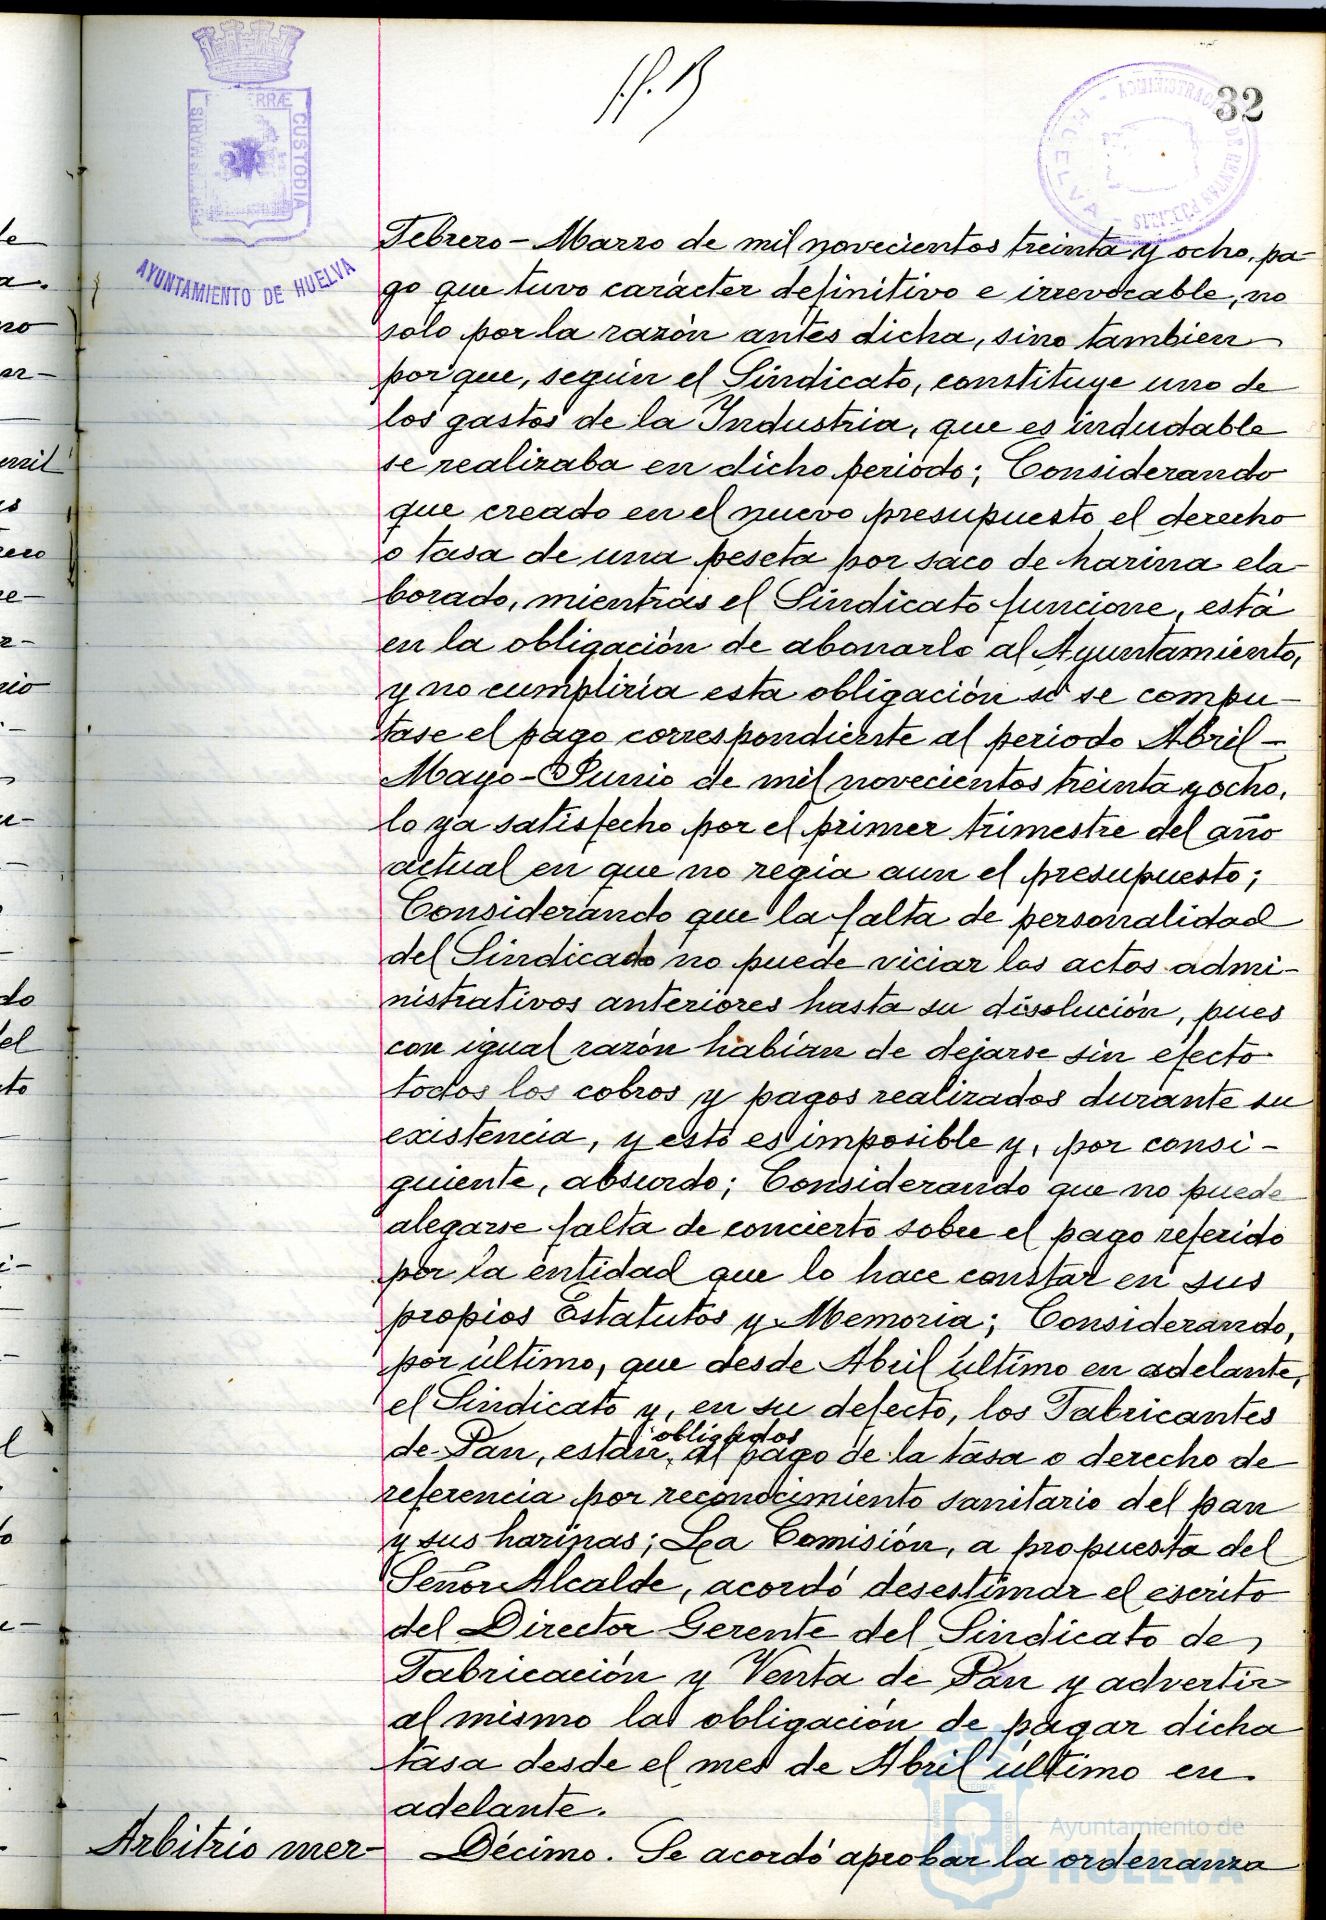 32
PORTUS MARIS ET TERRÆ CUSTODIA
AYUNTAMIENTO DE HUELVA
ADMINISTRACION DE RENTAS PUBLICAS - HUELVA -
Febrero - Marzo de mil novecientos treinta y ocho, pa-
go que tuvo carácter definitivo e irrevocable, no
solo por la razón antes dicha, sino tambien
porque, según el Sindicato, constituye uno de
los gastos de la Industria, que es indudable
se realizaba en dicho periodo; Considerando
que creado en el nuevo presupuesto el derecho
o tasa de una peseta por saco de harina ela-
borado, mientras el Sindicato funcione, está
en la obligación de abonarlo al Ayuntamiento,
y no cumpliria esta obligación si se compu-
tase el pago correspondiente al periodo Abril-
Mayo-Junio de mil novecientos treinta y ocho,
lo ya satisfecho por el primer trimestre del año
actual en que no regia aun el presupuesto;
Considerando que la falta de personalidad
del Sindicado no puede viciar los actos admi-
nistrativos anteriores hasta su disolución, pues
con igual razón habian de dejarse sin efecto
todos los cobros y pagos realizados durante su
existencia, y esto es imposible y, por consi-
guiente, absurdo; Considerando que no puede
alegarse falta de concierto sobre el pago referido
por la entidad que lo hace constar en sus
propios Estatutos y Memoria; Considerando,
por último, que desde Abril último en adelante,
el Sindicato y, en su defecto, los Fabricantes
de Pan, están obligados al pago de la tasa o derecho de
referencia por reconocimiento sanitario del pan
y sus harinas; La Comisión, a propuesta del
Señor Alcalde, acordó desestimar el escrito
del Director Gerente del Sindicato de
Fabricación y Venta de Pan y advertir
al mismo la obligación de pagar dicha
tasa desde el mes de Abril último en
adelante.
Arbitrio mer- Décimo. Se acordó aprobar la ordenanza
Ayuntamiento de
HUELVA